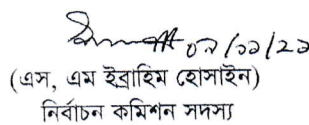 ০৭/১১/২১
(এস, এম ইব্রাহিম হোসাইন)
নির্বাচন কমিশন সদস্য